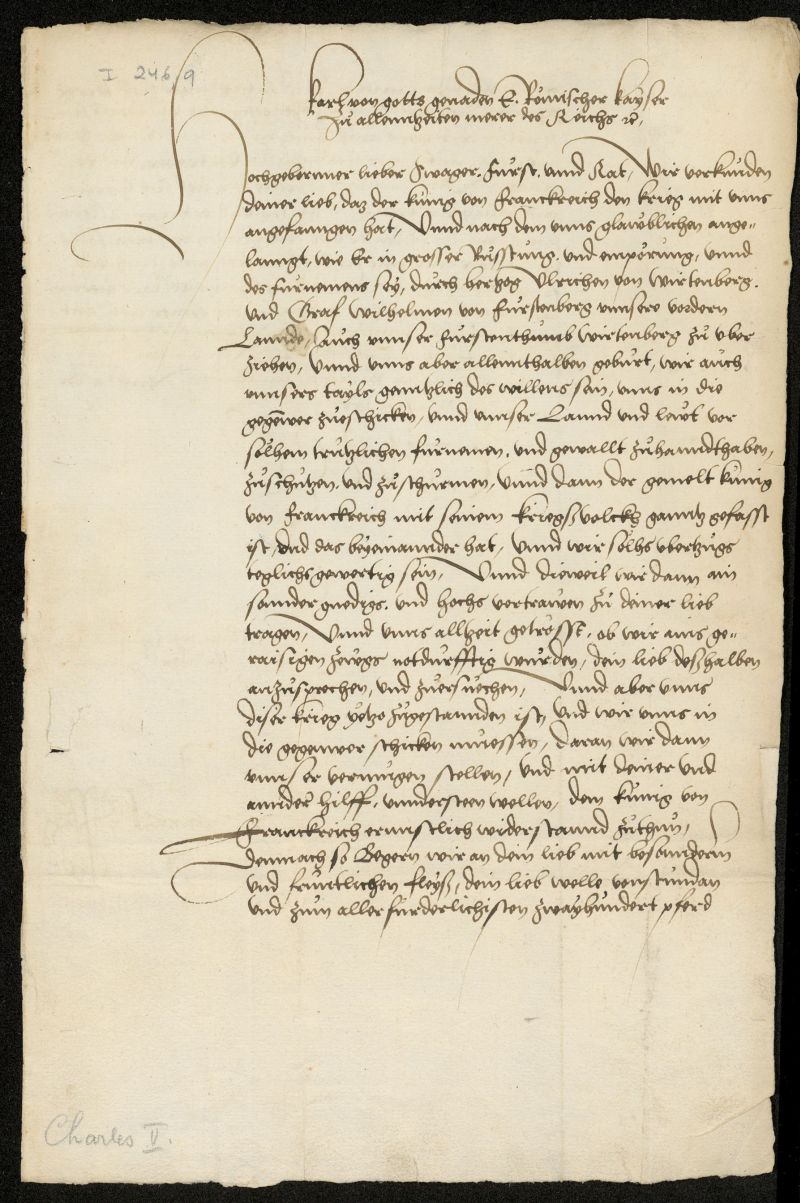 I 246, 9
Karl von gotts genaden E. Römischer kayser
zu allenntzeiten merer des Reichs rc.
Hochgeborner lieber Swager, Fürst, unnd Rat, Wir verkunden
deiner lieb, daz der kunig von Franckreich den krieg mit unns
angefanngen hat, Unnd nach dem unns glawblichen ange-
lanngt, wie Er in grosser Rüsstung, und empörung, unnd
des furnemens sey, durch hertzog Ulrichen von Wirtenberg,
und Graf Wilhelmen von Furstenberg unnsere vordern
Lannde, Auch unnser furstenthumb Wirtenberg zu uber
ziehen, Unnd unns aber allennthalben geburt, wir auch
unnsers tayls genntzlich des willens sein, unns in die
gegenwer zueschicken, unnd unnser Lannd und lewt vor
solhem trutzlichen furnemen, und gewallt zuhanndthaben,
zuschutzen, und zuschurmen, Unnd dann der gemelt kunig
von Franckreich mit seinem kriegßvolckh ganntz gefasst
ist, und das beyeinannder hat, Unnd wir solhs uberzugs
teglichs gewertig sein, Unnd dieweil wir dann ain
sonder gnedigs, und hochs vertrawen zu deiner lieb
tragen, Unnd unns allzeit getrösst, ob wir ains ge-
raisigen zewgs notdurfftig wurden, dein lieb deßhalben
anzusprechen, und zuersuechen, Unnd aber unns
diser krieg yetzo zugestannden ist, und wir unns in
die gegenwer schicken muessen, daran wir dann
unnser vermugen stellen, und mit deiner und
annder hilff, unndersteen wellen, dem kunig von
Franckreich ernnstlich widerstannd zuthun,
Demnach so Begern wir an dein lieb mit besonnderm
und fruntlichen fleyß, dein lieb welle vonstundan
und zum aller furderlichisten zwayhundert pferd
Charles V.